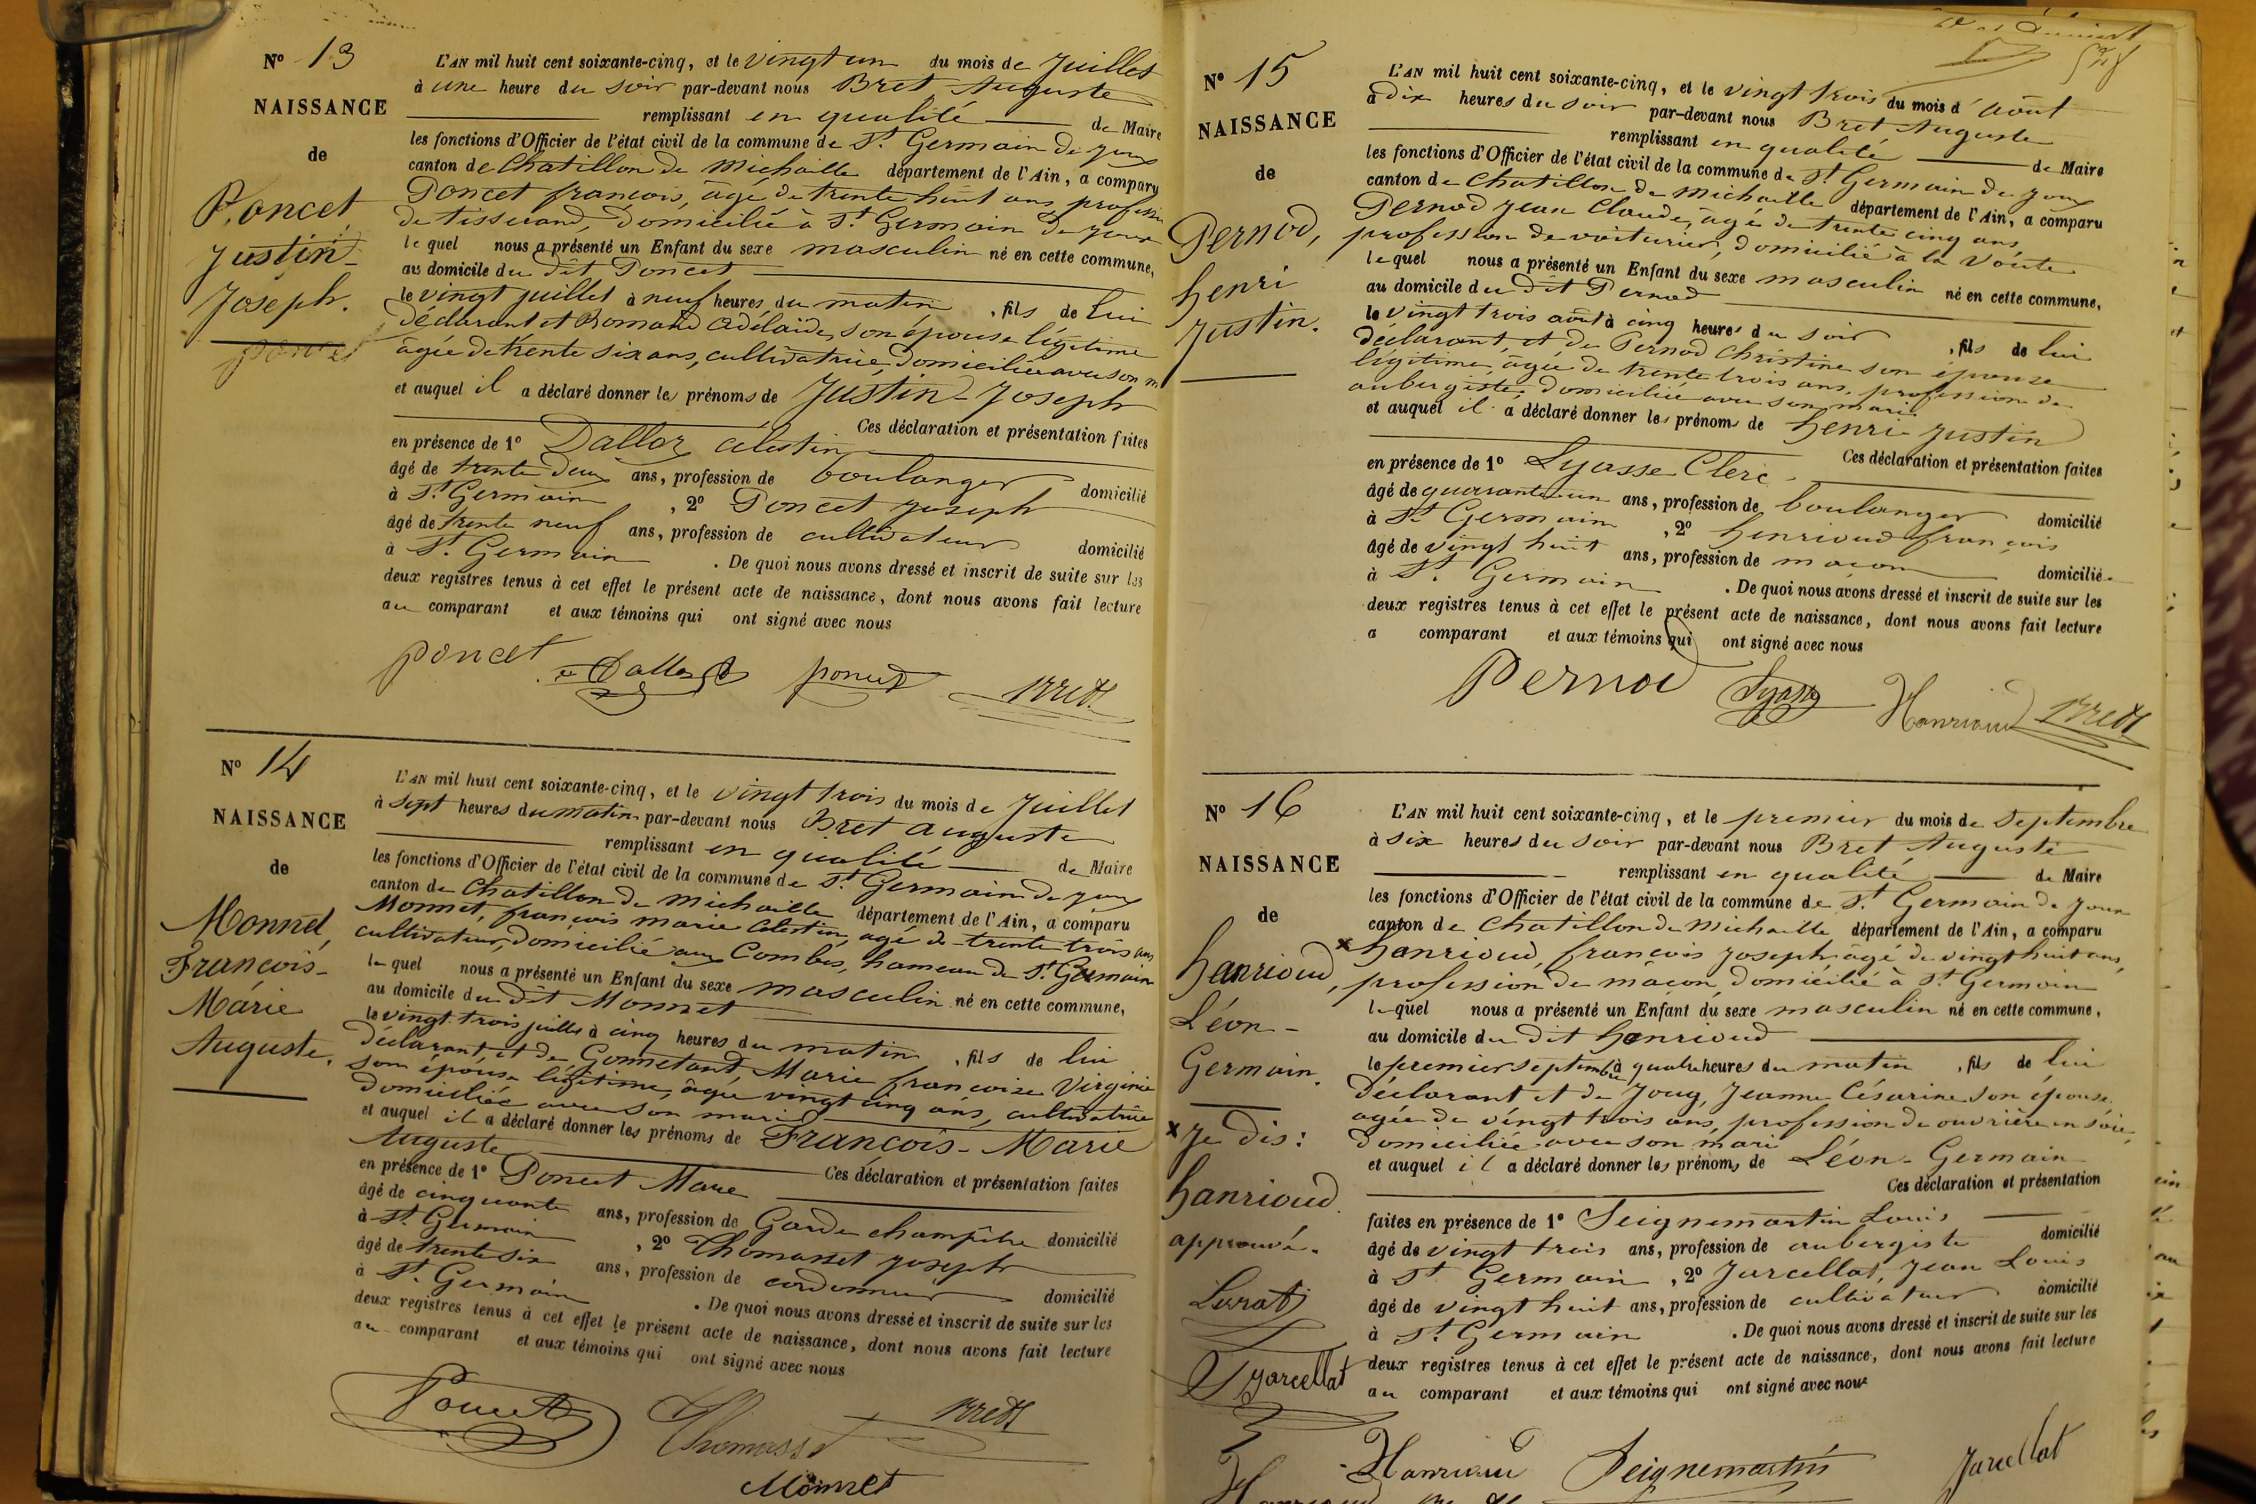 N° 13
NAISSANCE
de
Poncet
Justin-
Joseph.
Poncet
L'AN mil huit cent soixante-cinq, et le vingt un du mois de Juillet
à une heure du soir par-devant nous Bret Auguste
remplissant en qualité de Maire
les fonctions d'Officier de l'état civil de la commune de St Germain de Joux
canton de Chatillon de Michaille département de l'Ain, a comparu
Poncet françois, âgé de trente huit ans profession
de tisserand, domicilié à St Germain de Joux
lequel nous a présenté un Enfant du sexe masculin né en cette commune,
au domicile du dit Poncet
le vingt juillet à neuf heures du matin, fils de lui
déclarant et Romand Adélaïde, son épouse légitime
âgée de trente six ans, cultivatrice, domiciliée avec son m
et auquel il a déclaré donner les prénoms de Justin-Joseph
Ces déclaration et présentation faites
en présence de 1° Dalloz Célestin
âgé de trente deux ans, profession de boulanger domicilié
à St Germain, 2° Poncet Joseph
âgé de trente neuf ans, profession de cultivateur domicilié
à St Germain. De quoi nous avons dressé et inscrit de suite sur les
deux registres tenus à cet effet le présent acte de naissance, dont nous avons fait lecture
au comparant et aux témoins qui ont signé avec nous
Poncet Dalloz Poncet Bret
N° 14
NAISSANCE
de
Monnet,
François-
Marie
Auguste.
L'AN mil huit cent soixante-cinq, et le vingt trois du mois de Juillet
à sept heures du matin par-devant nous Bret Auguste
remplissant en qualité de Maire
les fonctions d'Officier de l'état civil de la commune de St Germain de Joux
canton de Chatillon de Michaille département de l'Ain, a comparu
Monnet, françois marie Célestin, agé de trente trois ans
cultivateur, domicilié aux Combes, hameau de St Germain
lequel nous a présenté un Enfant du sexe masculin né en cette commune,
au domicile du dit Monnet
le vingt trois juillet à cinq heures du matin, fils de lui
déclarant, et de Gonnetand Marie françoise Virginie
son épouse légitime, âgée vingt cinq ans, cultivatrice
domiciliée avec son mari
et auquel il a déclaré donner les prénoms de François-Marie
Auguste
Ces déclaration et présentation faites
en présence de 1° Poncet Marie
âgé de cinquante ans, profession de Garde champêtre domicilié
à St Germain, 2° Thomasset Joseph
âgé de trente six ans, profession de cordonnier domicilié
à St Germain. De quoi nous avons dressé et inscrit de suite sur les
deux registres tenus à cet effet le présent acte de naissance, dont nous avons fait lecture
au comparant et aux témoins qui ont signé avec nous
Poncet Thomasset Bret
Monnet
N° 15
NAISSANCE
de
Pernod,
henri
Justin.
L'AN mil huit cent soixante-cinq, et le vingt trois du mois d'août
à dix heures du soir par-devant nous Bret Auguste
remplissant en qualité de Maire
les fonctions d'Officier de l'état civil de la commune de St Germain de Joux
canton de Chatillon de Michaille département de l'Ain, a comparu
Pernod Jean Claude, âgé de trente cinq ans,
profession de voiturier, domicilié à la Voûte
lequel nous a présenté un Enfant du sexe masculin né en cette commune,
au domicile du dit Pernod
le vingt trois août à cinq heures du soir, fils de lui
déclarant, et de Pernod Christine son épouse
légitime, âgée de trente trois ans, profession de
aubergiste, domiciliée avec son mari
et auquel il a déclaré donner les prénoms de henri Justin
Ces déclaration et présentation faites
en présence de 1° Lyasse Clerc
âgé de quarante un ans, profession de boulanger domicilié
à St Germain, 2° henrioud françois
âgé de vingt huit ans, profession de maçon domicilié
à St Germain. De quoi nous avons dressé et inscrit de suite sur les
deux registres tenus à cet effet le présent acte de naissance, dont nous avons fait lecture
a comparant et aux témoins qui ont signé avec nous
Pernod Lyasse Hanrioud Bret
N° 16
NAISSANCE
de
henrioud,
Léon-
Germain.
x Je dis:
hanrioud.
approuvé.
Jarcellat
L'AN mil huit cent soixante-cinq, et le premier du mois de septembre
à six heures du soir par-devant nous Bret Auguste
remplissant en qualité de Maire
les fonctions d'Officier de l'état civil de la commune de St Germain de Joux
canton de Chatillon de Michaille département de l'Ain, a comparu
x hanrioud, françois Joseph âgé de vingt huit ans,
profession de maçon, domicilié à St Germain
lequel nous a présenté un Enfant du sexe masculin né en cette commune,
au domicile du dit henrioud
le premier septembre à quatre heures du matin, fils de lui
déclarant et de Joug, Jeanne Césarine son épouse,
agée de vingt trois ans, profession de ouvrière en soie,
domiciliée avec son mari
et auquel il a déclaré donner les prénoms de Léon-Germain
Ces déclaration et présentation
faites en présence de 1° Seignemartin Louis
âgé de vingt trois ans, profession de aubergiste domicilié
à St Germain, 2° Jarcellat, Jean Louis
âgé de vingt huit ans, profession de cultivateur domicilié
à St Germain. De quoi nous avons dressé et inscrit de suite sur les
deux registres tenus à cet effet le présent acte de naissance, dont nous avons fait lecture
au comparant et aux témoins qui ont signé avec nous
Hanrioud Seignemartin Jarcellat